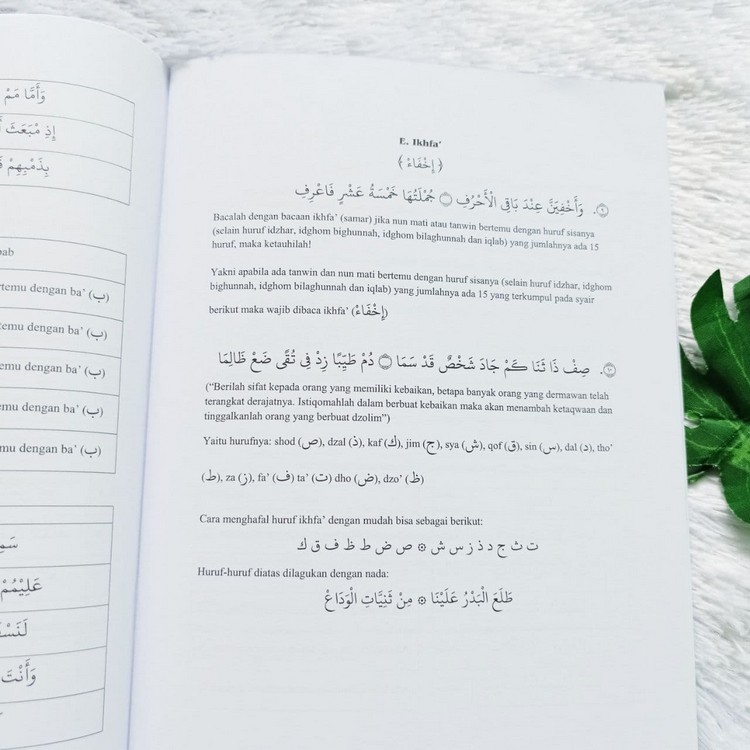 وَأَمَّا مَمْ
إِذِ مْبَعَثَ
بِذَمْبِهِمْ
bab
rtemu dengan ba' (ب)
temu dengan ba' (ب)
emu dengan ba' (ب)
emu dengan ba' (ب)
mu dengan ba' (ب)
عَلِيْمُمْ
لَنَسْفَ
وَأَنْتَ
E. Ikhfa'
﴿ إِخْفَاءْ ﴾
١. وَأَخْفِيَنَّ عِنْدَ بَاقِى الْأَحْرُفِ ۝ جُمْلَتُهَا خَمْسَةُ عَشْرٍ فَاعْرِفِ
Bacalah dengan bacaan ikhfa' (samar) jika nun mati atau tanwin bertemu dengan huruf sisanya
(selain huruf idzhar, idghom bighunnah, idghom bilaghunnah dan iqlab) yang jumlahnya ada 15
huruf, maka ketauhilah!
Yakni apabila ada tanwin dan nun mati bertemu dengan huruf sisanya (selain huruf idzhar, idghom
bighunnah, idghom bilaghunnah dan iqlab) yang jumlahnya ada 15 yang terkumpul pada syair
berikut maka wajib dibaca ikhfa' (إِخْفَاءْ)
٢. صِفْ ذَا ثَنَا كَمْ جَادَ شَخْصٌ قَدْ سَمَا ۝ دُمْ طَيِّبًا زِدْ فِى تُقًى ضَعْ ظَالِمَا
("Berilah sifat kepada orang yang memiliki kebaikan, betapa banyak orang yang dermawan telah
terangkat derajatnya. Istiqomahlah dalam berbuat kebaikan maka akan menambah ketaqwaan dan
tinggalkanlah orang yang berbuat dzolim")
Yaitu hurufnya: shod (ص), dzal (ذ), kaf (ك), jim (ج), sya (ش), qof (ق), sin (س), dal (د), tho'
(ط), za (ز), fa' (ف) ta' (ت) dho (ض), dzo' (ظ)
Cara menghafal huruf ikhfa' dengan mudah bisa sebagai berikut:
ت ث ج د ذ ز س ش ۞ ص ض ط ظ ف ق ك
Huruf-huruf diatas dilagukan dengan nada:
طَلَعَ الْبَدْرُ عَلَيْنَا ۞ مِنْ ثَنِيَّاتِ الْوَدَاعْ